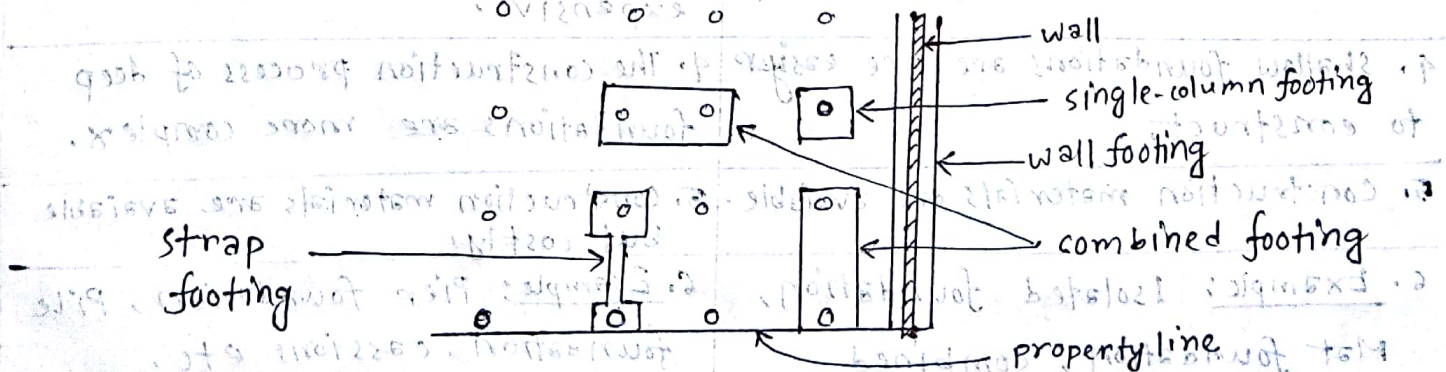 wall
single-column footing
wall footing
combined footing
strap
footing
property line